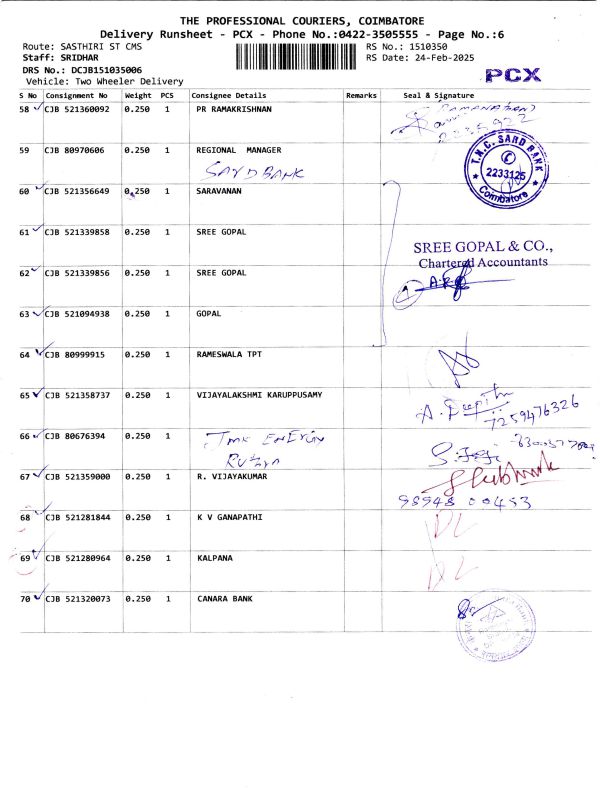 THE PROFESSIONAL COURIERS, COIMBATORE
Delivery Runsheet - PCX - Phone No.:0422-3505555 - Page No.:6
Route: SASTHIRI ST CMS RS No.: 1510350
Staff: SRIDHAR RS Date: 24-Feb-2025
DRS No.: DCJB151035006
Vehicle: Two Wheeler Delivery PCX
S No Consignment No Weight PCS Consignee Details Remarks Seal & Signature
58 CJB 521360092 0.250 1 PR RAMAKRISHNAN
59 CJB 80970606 0.250 1 REGIONAL MANAGER
SAYDBANK
T.N.C. SARD BANK
2233125
Coimbatore
60 CJB 521356649 0.250 1 SARAVANAN
61 CJB 521339858 0.250 1 SREE GOPAL
SREE GOPAL & CO.,
Chartered Accountants
62 CJB 521339856 0.250 1 SREE GOPAL
63 CJB 521094938 0.250 1 GOPAL
64 CJB 80999915 0.250 1 RAMESWALA TPT
65 CJB 521358737 0.250 1 VIJAYALAKSHMI KARUPPUSAMY
7259476326
66 CJB 80676394 0.250 1
67 CJB 521359000 0.250 1 R. VIJAYAKUMAR
98948 00453
68 CJB 521281844 0.250 1 K V GANAPATHI
DL
69 CJB 521280964 0.250 1 KALPANA
DL
70 CJB 521320073 0.250 1 CANARA BANK